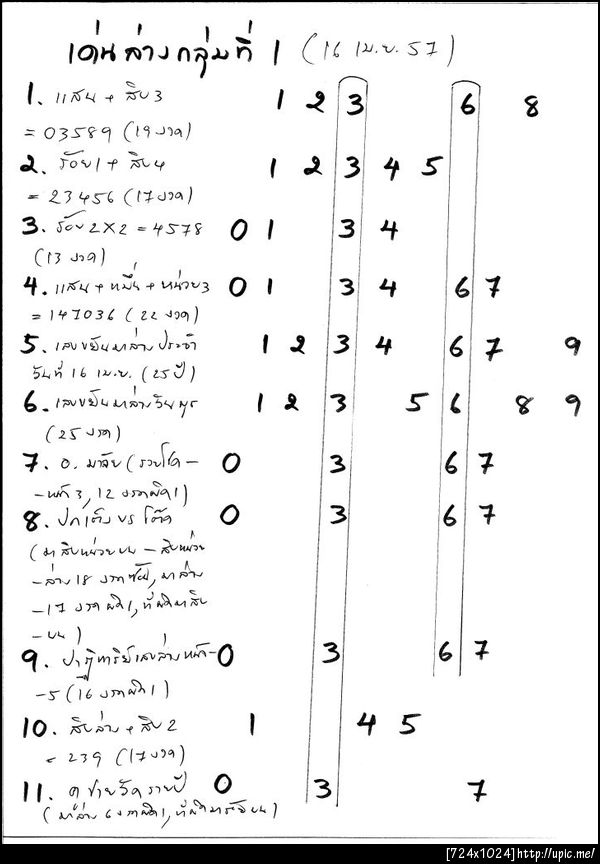 เด่นล่างกลุ่มที่ 1 (16 เม.ย. 57)
1. แสน + สิบ 3 1 2 3 6 8
= 03589 (19 งวด)
2. ร้อย 1 + สิบ 4 1 2 3 4 5
= 23456 (17 งวด)
3. ร้อย 2 x 2 = 4578 0 1 3 4
(13 งวด)
4. แสน + หมื่น + หน่วย 3 0 1 3 4 6 7
= 147036 (22 งวด)
5. เลขขยันมาล่างประจำ 1 2 3 4 6 7 9
วันที่ 16 เม.ย. (25 ปี)
6. เลขขยันมาล่างวันพุธ 1 2 3 5 6 8 9
(25 งวด)
7. อ. มาลัย (รวยโชค - 0 3 6 7
- หน้า 3, 12 งวดผิด 1)
8. ปกเต็ง บร โต๊ด 0 3 6 7
(มาสิบหน่วยบน - สิบหน่วย
- ล่าง 18 งวด, มาล่าง
- 17 งวดผิด 1, ที่ผิดมาสิบ
- บน)
9. ปาฏิหาริย์เลขล่างหน้า - 0 3 6 7
- 5 (16 งวดผิด 1)
10. สิบล่าง + สิบ 2 1 4 5
= 239 (17 งวด)
11. ฅ ชายวัดรายปี 0 3 7
(มาล่าง 6 งวดผิด 1, ที่ผิดมาร้อยบน)
[724x1024]http://upic.me/